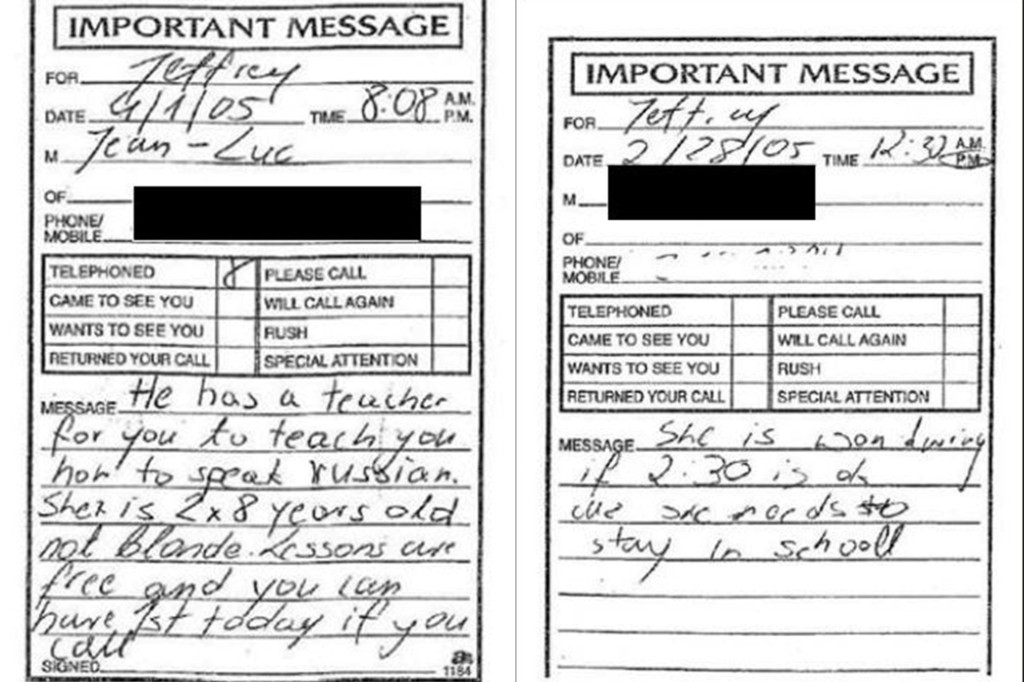 IMPORTANT MESSAGE
FOR Jeffrey
DATE 4/1/05 TIME 8:08 A.M. P.M.
M Jean-Luc
OF
PHONE/
MOBILE
TELEPHONED PLEASE CALL
CAME TO SEE YOU WILL CALL AGAIN
WANTS TO SEE YOU RUSH
RETURNED YOUR CALL SPECIAL ATTENTION
MESSAGE He has a teacher
for you to teach you
how to speak russian.
is 2x8 years old
not blonde. Lessons are
free and you can
have 1st today if you
call
SIGNED
1184
IMPORTANT MESSAGE
FOR Jeffrey
DATE 2/28/05 TIME 12:32 A.M. P.M.
M
OF
PHONE/
MOBILE
TELEPHONED PLEASE CALL
CAME TO SEE YOU WILL CALL AGAIN
WANTS TO SEE YOU RUSH
RETURNED YOUR CALL SPECIAL ATTENTION
MESSAGE She is
if 2:30 is ok
she needs to
stay in school